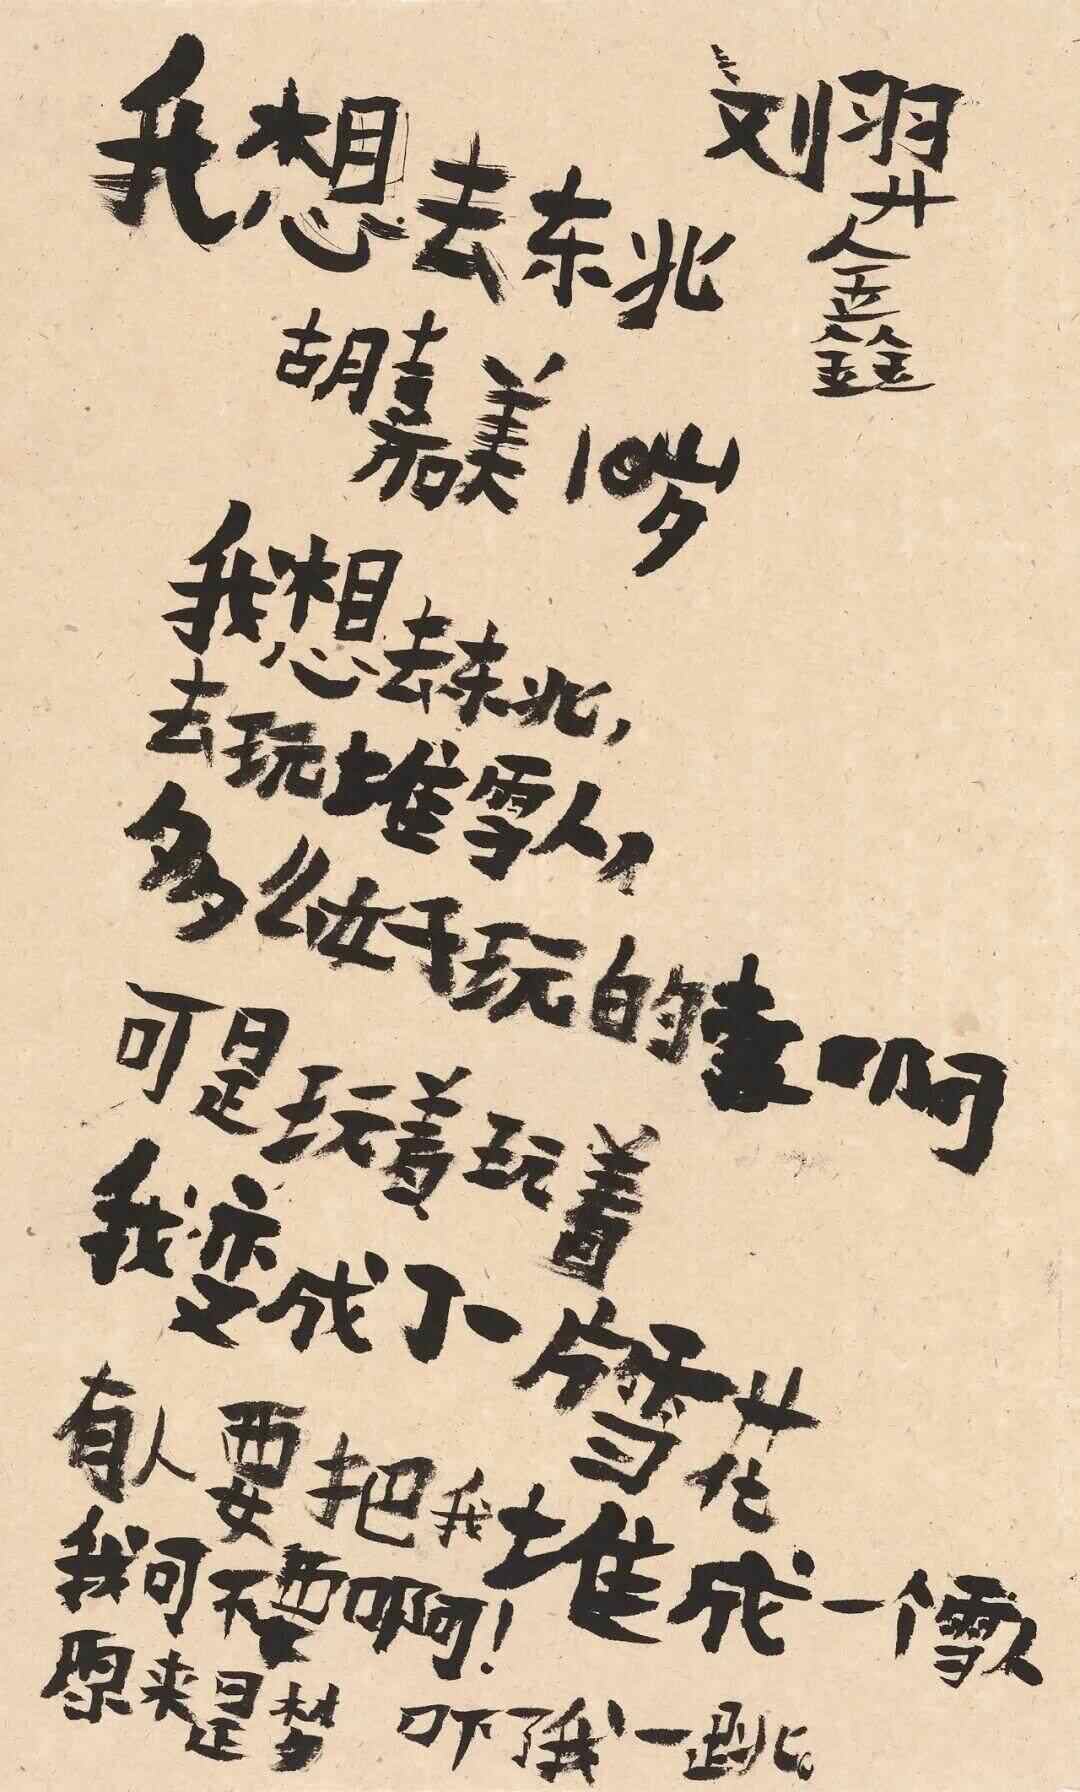 我想去东北
胡嘉美 10岁
我想去东北，
去玩堆雪人，
多么好玩的事啊
可是玩着玩着
我变成了一片雪花
有人要把我堆成一个雪人
我可不要啊！
原来是梦 吓了我一跳。
刘羿鑫